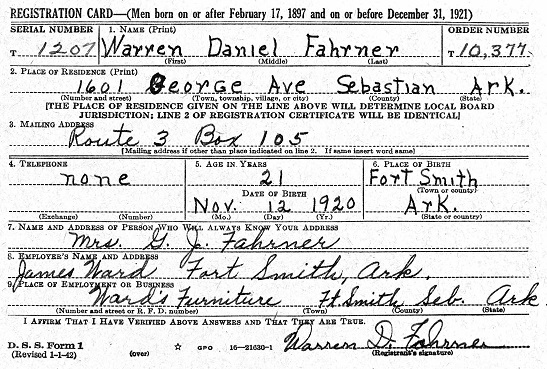 REGISTRATION CARD—(Men born on or after February 17, 1897 and on or before December 31, 1921)
SERIAL NUMBER 1. NAME (Print) ORDER NUMBER
T 1207 Warren Daniel Fahrner T 10,377
(First) (Middle) (Last)
2. PLACE OF RESIDENCE (Print)
1601 George Ave Sebastian Ark.
(Number and street) (Town, township, village, or city) (County) (State)
[THE PLACE OF RESIDENCE GIVEN ON THE LINE ABOVE WILL DETERMINE LOCAL BOARD
JURISDICTION; LINE 2 OF REGISTRATION CERTIFICATE WILL BE IDENTICAL]
3. MAILING ADDRESS
Route 3 Box 105
[Mailing address if other than place indicated on line 2. If same insert word same]
4. TELEPHONE 5. AGE IN YEARS 6. PLACE OF BIRTH
none 21 Fort Smith
DATE OF BIRTH (Town or county)
Nov. 12 1920 Ark.
(Exchange) (Number) (Mo.) (Day) (Yr.) (State or country)
7. NAME AND ADDRESS OF PERSON WHO WILL ALWAYS KNOW YOUR ADDRESS
Mrs. G. J. Fahrner
8. EMPLOYER'S NAME AND ADDRESS
James Ward Fort Smith, Ark.
9. PLACE OF EMPLOYMENT OR BUSINESS
Ward's Furniture Ft Smith Seb. Ark
(Number and street or R. F. D. number) (Town) (County) (State)
I AFFIRM THAT I HAVE VERIFIED ABOVE ANSWERS AND THAT THEY ARE TRUE.
D. S. S. Form 1 Warren D. Fahrner
(Revised 1-1-42) (over) ☆ GPO 16—21630-1 (Registrant's signature)